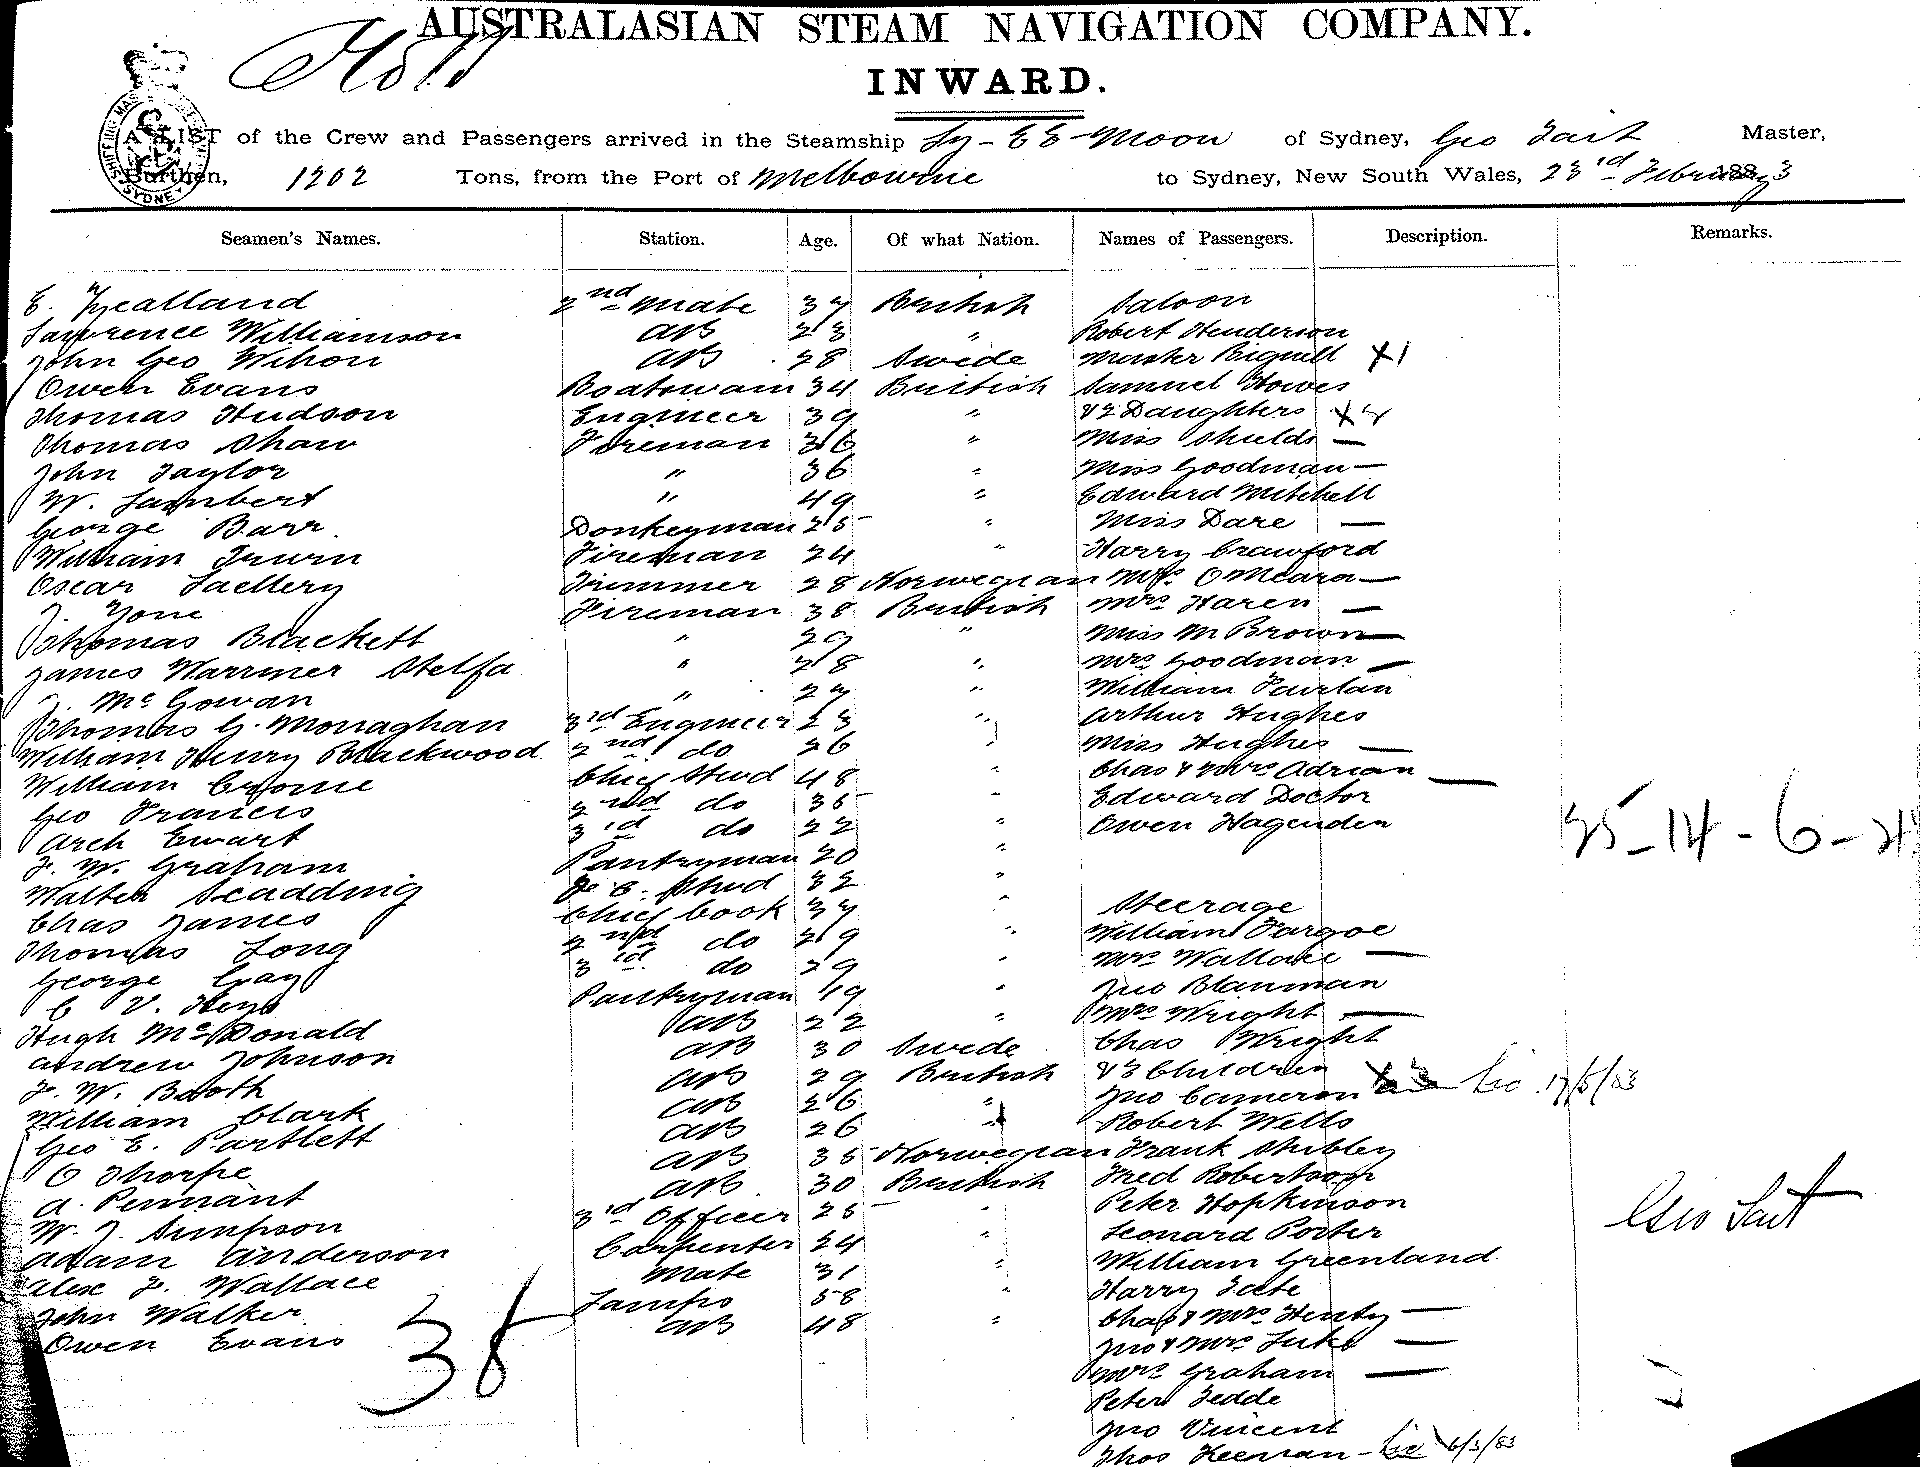 AUSTRALASIAN STEAM NAVIGATION COMPANY.
INWARD.
A LIST of the Crew and Passengers arrived in the Steamship Ly-EE-Moon of Sydney, Geo Tait Master,
Burthen, 1202 Tons, from the Port of Melbourne to Sydney, New South Wales, 23rd February 1883
Seamen's Names. Station. Age. Of what Nation. Names of Passengers. Description. Remarks.
E. 2nd Mate 37 British Saloon
Lawrence Williamson AB 23 " Robert Henderson
John Geo Wilson AB 28 Swede Master Bignell X1
Owen Evans Boatswain 34 British Samuel Howes
Thomas Hudson Engineer 39 " & 2 Daughters
Thomas Shaw Fireman 36 " Miss Shields —
John Taylor " 36 " Miss Goodman —
W. Lambert " 49 " Edward Mitchell
George Barr Donkeyman 25 " Miss Dare —
William Irwin Fireman 24 " Harry Crawford
Oscar Trimmer 28 Norwegian Mrs OMeara —
J. Fireman 38 British Mrs Haren —
Thomas Blackett " 29 " Miss M Brown —
James Warriner Stelfa " 28 " Mrs Goodman —
J. McGowan " 27 " William
Thomas G. Monaghan 3rd Engineer 23 " Arthur Hughes
William Henry Blackwood 2nd do 26 Miss Hughes —
William Chief Stwd 48 " Chas & Mrs Adrian —
Geo Francis 2nd do 35 " Edward Doctor
Arch Ewart 3rd do 22 " Owen Hagenden
F. W. Graham Pantryman 20 "
Walter Scadding F. C. Stwd 32 "
Chas James Chief Cook 37 " Steerage
Thomas Long 2nd do 29 " William
George Gay 3rd do 29 " Mrs Wallace —
C V. Pantryman 19 " Jno Blanman
Hugh McDonald AB 22 " Mrs Wright —
Andrew Johnson AB 30 Swede Chas Wright
F. W. Booth AB 29 British & 3 Children
William Clark AB 26 " Jno Cameron
Geo E. Partlett AB 26 Robert Wells
C Thorpe AB 35 Norwegian Frank Shibley
A. Pennant AB 30 British Fred Robertson
W. J. Simpson 3rd Officer 25 " Peter Hopkinson
Adam Anderson Carpenter 24 " Leonard Porter
Alex F. Wallace Mate 31 " William Greenland
John Walker Lamps 58 " Harry
Owen Evans AB 48 " Chas & Mrs Henty —
Jno & Mrs Luke —
Mrs Graham —
Peter Tedde
Jno Vincent
Thos Keenan 6/3/83
38
Geo Tait